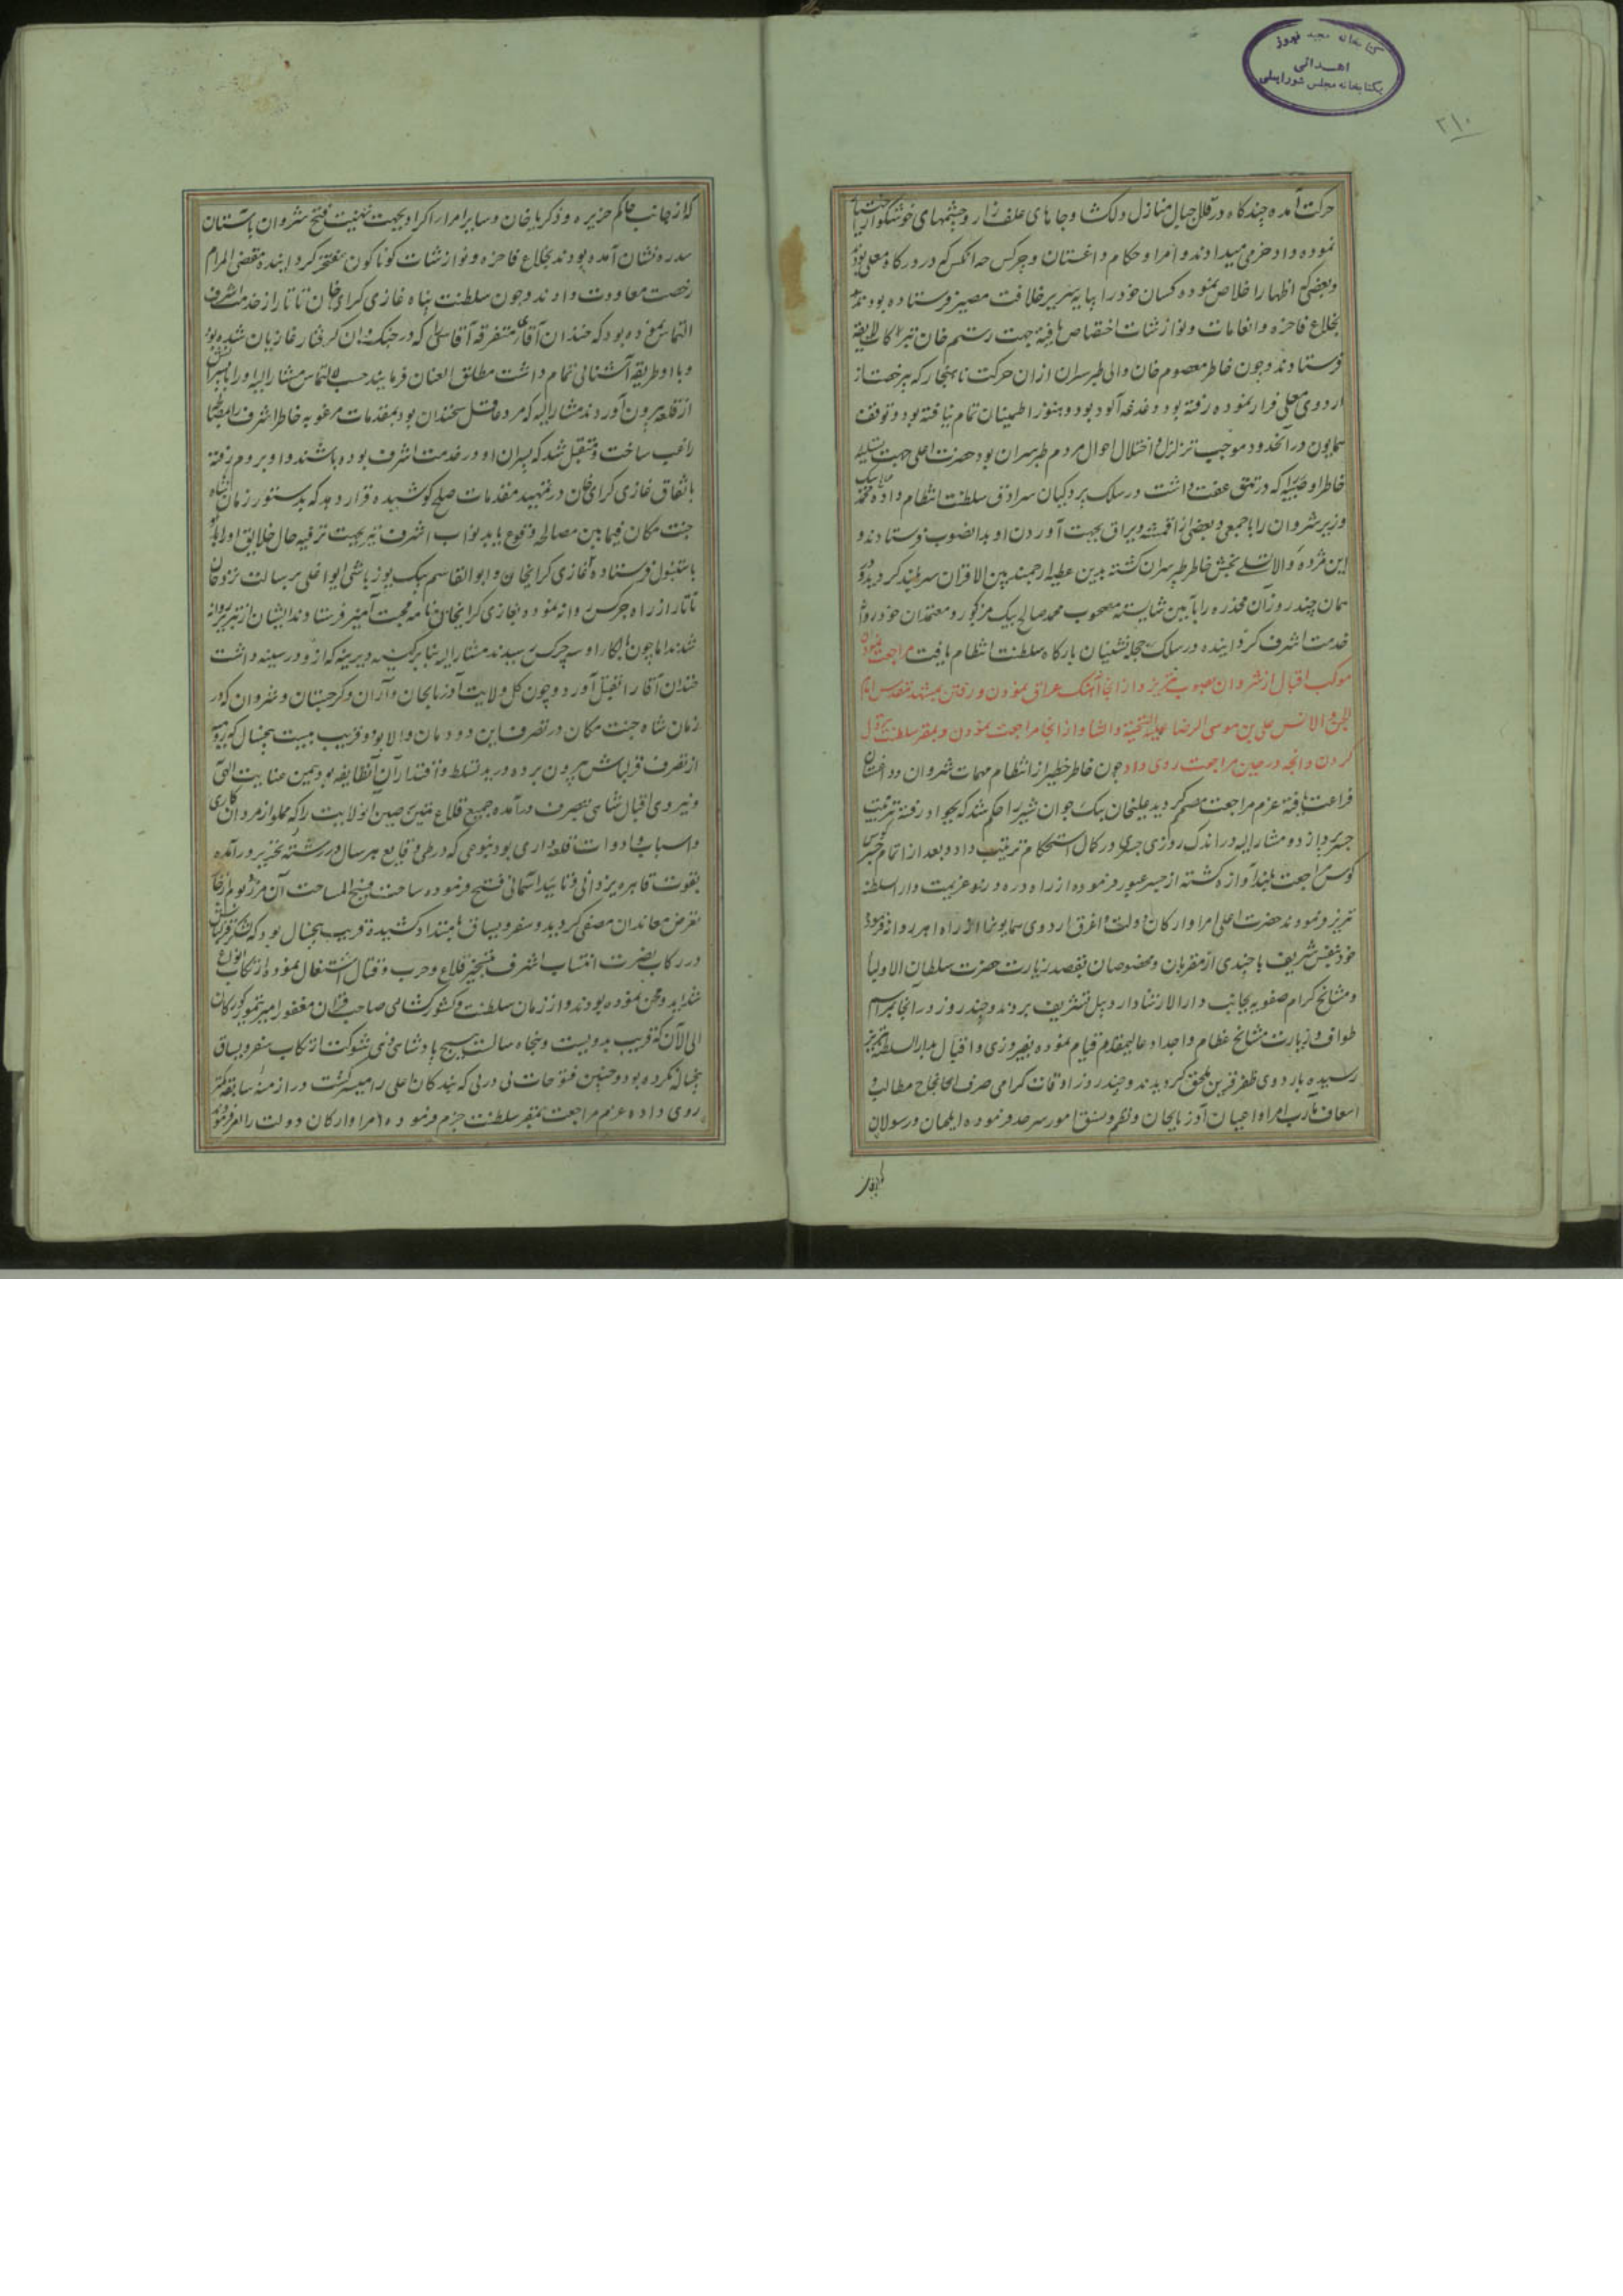 کتابخانه مجید فیروز
اهدائی
بکتابخانه مجلس شورایملی
۲۱۰
حرکت آمده چند کاه در قلل جبال منازل دلکشا و جاهای علف زار و چشمهای خوشکوار اختیار
نموده داد خرمی میدادند و امرا و حکام داغستان و چرکس چه انکس که در درکاه معلی بود
و بعضی که اظهار اخلاص نموده کسان خود را بپایه سریر خلافت مصیر فرستاده بودند
بخلاع فاخره و انعامات و نوازشات اختصاص یافته جهت رستم خان نیز
فرستادند و چون خاطر معصوم خان والی طبرسران ازان حرکت ناهنجار که بیرخصت از
اردوی معلی فرار نموده رفته بود دغدغه آلود بود و هنوز اطمینان تمام نیافته بود و توقف
همایون در آنحدود موجب تزلزل و اختلال احوال مردم طبرسران بود حضرت اعلی جهت تسلیه
خاطر او صبیه که در تتق عفت داشت در سلک پردکیان سرادق سلطنت انتظام داده
وزیر شروان را با جمعی و بعضی از اقمشه و یراق بجهت آوردن او بدانصوب فرستادند و
این مژده والا تسلی بخش خاطر طبرسران کشته بدین عطیه ارجمند بین الاقران سربلند کردید و در
همان چند روز آن مخدره را بآیین شایسته مصحوب محمد صالح بیک مزکور و معتمدان خود روانه
خدمت اشرف کردانیده در سلک حجله نشینان بارکاه سلطنت انتظام یافت مراجعت نمودن
موکب اقبال از شروان بصوب تبریز و از آنجا آهنک عراق نمودن و رفتن بمشهد مقدس امام
الجن و الانس علی بن موسی الرضا علیه التحیة والثنا و از انجا مراجعت نمودن و بمقر سلطنت نزول
کردن و آنچه در حین مراجعت روی داد چون خاطر خطیر از انتظام مهمات شروان و داغستان
فراغت یافته عزم مراجعت مصمم کردید علیخان بیک جوان شیر را حکم شد که بجواد رفته ترتیب
جسر پردازد و مشار الیه در اندک روزی جسری در کمال استحکام ترتیب داد و بعد از اتمام جسر
کوس مراجعت بلند آوازه کشته از جسر عبور فرموده از راه دره ورنو عزیمت دار السلطنه
تبریز فرمودند حضرت اعلی امرا و ارکان دولت و اغرق اردوی همایونرا از راه اهر روانه فرموده
خود بنفس شریف با چندی از مقربان و مخصوصان بقصد زیارت حضرت سلطان الاولیا
و مشایخ کرام صفویه بجانب دار الارشاد اردبیل تشریف بردند و چند روز در آنجا بمراسم
طواف و زیارت مشایخ عظام و اجداد عالیمقدار قیام نموده بفیروزی و اقبال بدار السلطنه تبریز
رسیده باردوی ظفر قرین ملحق کردیدند و چند روز اوقات کرامی صرف انجاح مطالب و
اسعاف مآرب امرا و اعیان آذربایجان و نظم و نسق امور سرحد فرموده ایلچیان و رسولان
که از جانب
که از جانب حاکم جزیره و ذکریا خان و سایر امراء اکراد بجهت تهنیت فتح شروان بآستان
سدره نشان آمده بودند بخلاع فاخره و نوازشات کوناکون مفتخر کردانیده مقضی المرام
رخصت معاودت دادند و چون سلطنت پناه غازی کرای خان تاتار از خدمت اشرف
التماس نموده بود که خندان آقای متفرقه آقاسی را که در جنک وان کرفتار غازیان شده بود
و با او طریقه آشنائی تمام داشت مطلق العنان فرمایند حسب الالتماس مشار الیه او را
از قلعه بیرون آوردند مشار الیه که مرد عاقل سخندان بود بمقدمات مرغوبه خاطر اشرف را بمصالحه
راغب ساخت و متقبل شد که پسران او در خدمت اشرف بوده باشند و او بروم رفته
باتفاق غازی کرای خان در تمهید مقدمات صلح کوشیده قرار دهد که بدستور زمان شاه
جنت مکان فیما بین مصالحه وقوع یابد نواب اشرف نیز بجهت ترفیه حال خلایق او را
باستنبول فرستاده غازی کرایخان و ابو القاسم بیک یوزباشی ایواغلی برسالت نزد خان
تاتار از راه چرکس روانه نموده بغازی کرایخان نامه محبت آمیز فرستادند ایشان از تبریز روانه
شدند اما چون بالکاء او سه چرکس رسیدند مشار الیه بنابر کینه دیرینه که ازو در سینه داشت
خندان آقا را بقتل آورد و چون کل ولایت آذربایجان و آران و کرجستان و شروان که در
زمان شاه جنت مکان در تصرف این دودمان والا بود و قریب بیست پنجسال که رومیه
از تصرف قزلباش بیرون برده در ید تسلط و اقتدار آن طایفه بود بیمن عنایت الهی
و نیروی اقبال شاهی بتصرف درآمده جمیع قلاع متین حصین انولایت را که مملو از مردان کاری
و اسباب و ادوات قلعه داری بود بنوعی که در طی وقایع هر سال در رشته تحریر درآمده
بقوت قاهره یزدانی و تایید آسمانی فتح فرموده ساحت فسیح المساحت آن مرز و بوم از
تعرض معاندان مصفی کردید و سفر و یساق بامتداد کشیده قریب پنجسال بود که لشکر قزلباش
در رکاب نصرت انتساب اشرف بتسخیر قلاع و حرب و قتال اشتغال نموده ارتکاب انواع
شداید و محن نموده بودند و از زمان سلطنت و کشورکشائی صاحب قران مغفور امیر تیمور کورکان
الی الآن که قریب بدویست و پنجاه سالست هیچ پادشاهی ذی شوکت ارتکاب سفر و یساق
پنجساله نکرده بود و چنین فتوحات پی در پی که بندکان اعلی را میسر کشت در ازمنه سابقه کمتر
روی داده عزم مراجعت بمقر سلطنت جزم فرموده امرا و ارکان دولت را